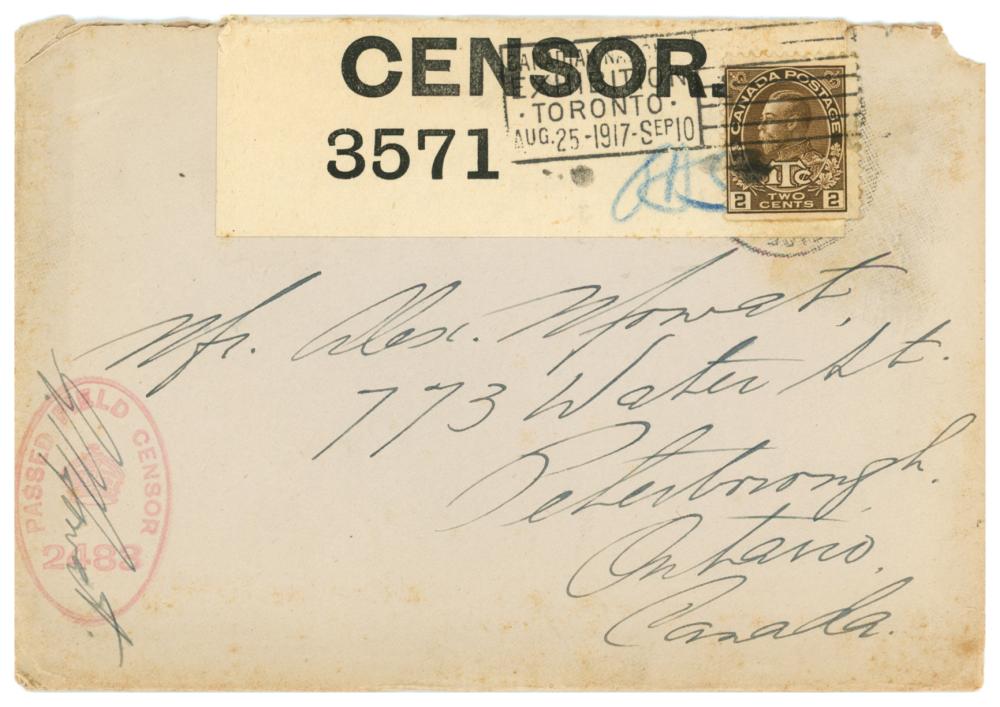 CENSOR.
3571
CANADIAN NATIONAL
EXHIBITION
·TORONTO·
AUG.25-1917-SEP10
CANADA POSTAGE
1Tc
2 TWO CENTS 2
Mr. Alex. Mowat,
773 Water St.
Peterborough.
Ontario.
Canada.
PASSED FIELD CENSOR
2483